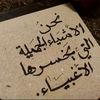 نحن
الأشياء الجميلة
التي يخسرها
الأغبياء.